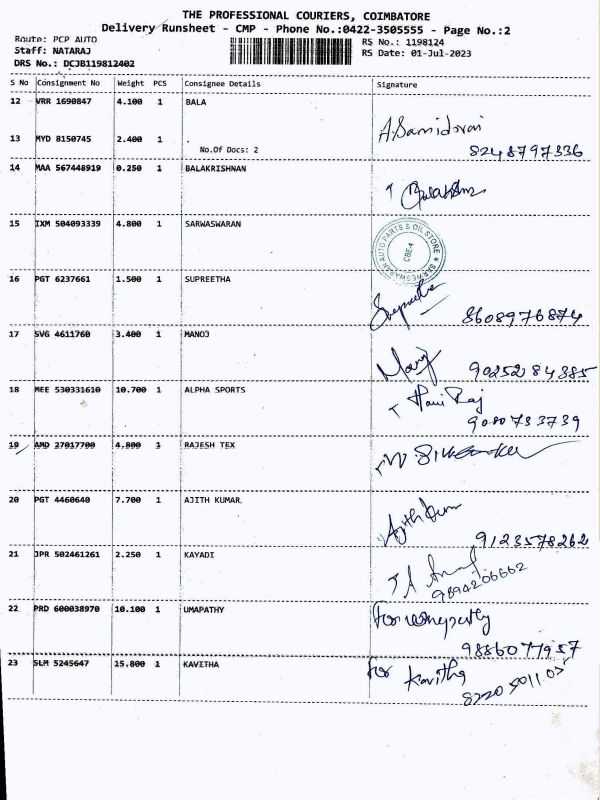 THE PROFESSIONAL COURIERS, COIMBATORE
Delivery Runsheet - CMP - Phone No.:0422-3505555 - Page No.:2
Route: PCP AUTO
Staff: NATARAJ
DRS No.: DCJB119812402
RS No.: 1198124
RS Date: 01-Jul-2023
S No Consignment No Weight PCS Consignee Details Signature
12 VRR 1690847 4.100 1 BALA
13 MYD 8150745 2.400 1 .
No.Of Docs: 2
8248797336
14 MAA 567448919 0.250 1 BALAKRISHNAN
15 IXM 504093339 4.800 1 SARWASWARAN
SARWESWARAN AUTO PARTS & OIL STORE
CBE-4
16 PGT 6237661 1.500 1 SUPREETHA
Supreetha
8608976874
17 SVG 4611760 3.400 1 MANOJ
Manoj
9025284385
18 MEE 530331610 10.700 1 ALPHA SPORTS
Hari Raj
9080733739
19 AMD 27017700 4.800 1 RAJESH TEX
20 PGT 4460640 7.700 1 AJITH KUMAR.
Ajith Kum
9123578262
21 JPR 502461261 2.250 1 KAYADI
9894206662
22 PRD 600038970 10.100 1 UMAPATHY
For
9886077957
23 SLM 5245647 15.800 1 KAVITHA
for Kavitha